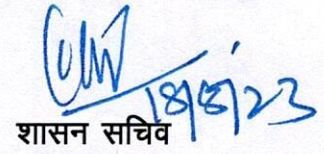 18/8/23
शासन सचिव